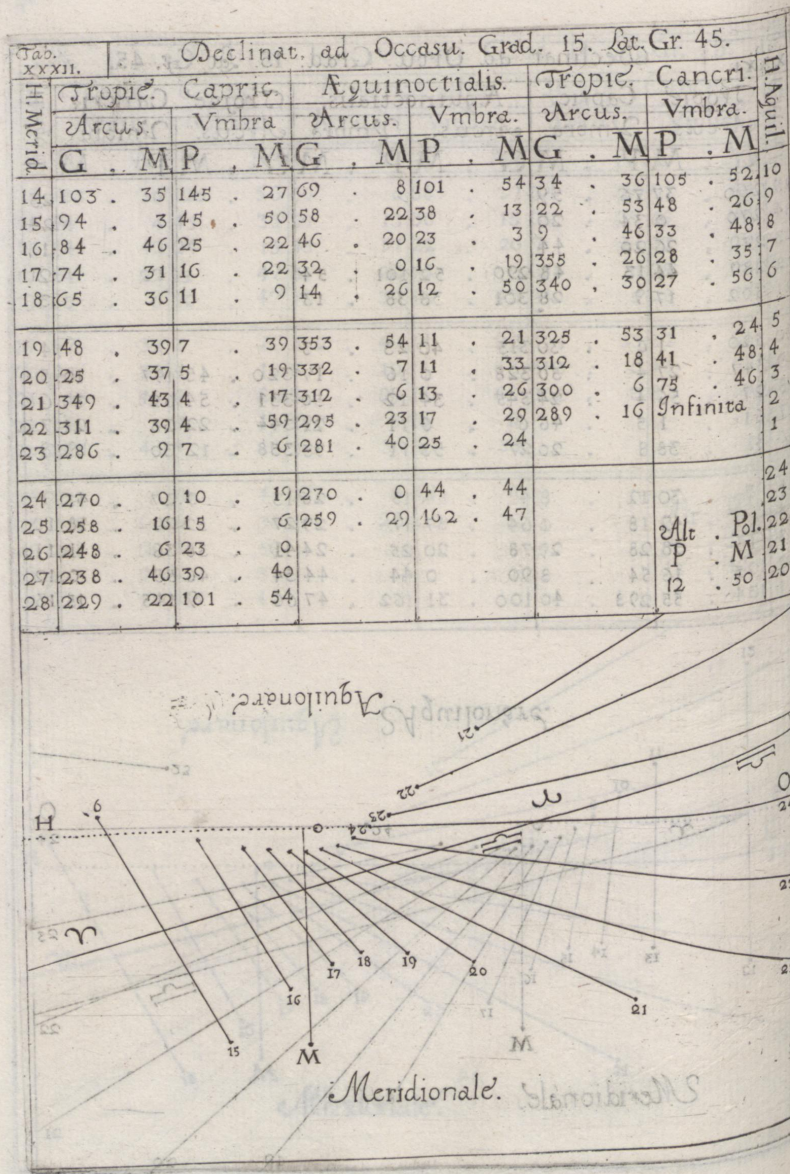 Tab. XXXII. Declinat. ad Occasu. Grad. 15. Lat. Gr. 45.
H. Merid. Tropic. Capric. Æquinoctialis. Tropic. Cancri. H. Aquil.
Arcus. Vmbra Arcus. Vmbra. Arcus. Vmbra.
G . M P . M G . M P . M G . M P . M
14 103 . 35 145 . 27 69 . 8 101 . 54 34 . 36 105 . 52 10
15 94 . 3 45 . 50 58 . 22 38 . 13 22 . 53 48 . 26 9
16 84 . 46 25 . 22 46 . 20 23 . 3 9 . 46 33 . 48 8
17 74 . 31 16 . 22 32 . 0 16 . 19 355 . 26 28 . 35 7
18 65 . 36 11 . 9 14 . 26 12 . 50 340 . 30 27 . 56 6
19 48 . 39 7 . 39 353 . 54 11 . 21 325 . 53 31 . 24 5
20 25 . 37 5 . 19 332 . 7 11 . 33 312 . 18 41 . 48 4
21 349 . 43 4 . 17 312 . 6 13 . 26 300 . 6 75 . 46 3
22 311 . 39 4 . 59 295 . 23 17 . 29 289 . 16 Infinita 2
23 286 . 9 7 . 6 281 . 40 25 . 24 1
24 270 . 0 10 . 19 270 . 0 44 . 44 24
25 258 . 16 15 . 6 259 . 29 162 . 47 23
26 248 . 6 23 . 0 Alt . Pol. 22
27 238 . 46 39 . 40 P . M 21
28 229 . 22 101 . 54 12 . 50 20
Aquilonare.
21
22
23
♈
♎
H 6 O 24 O
♎
♈
17 18 19 20
16 21
15 M
Meridionale.